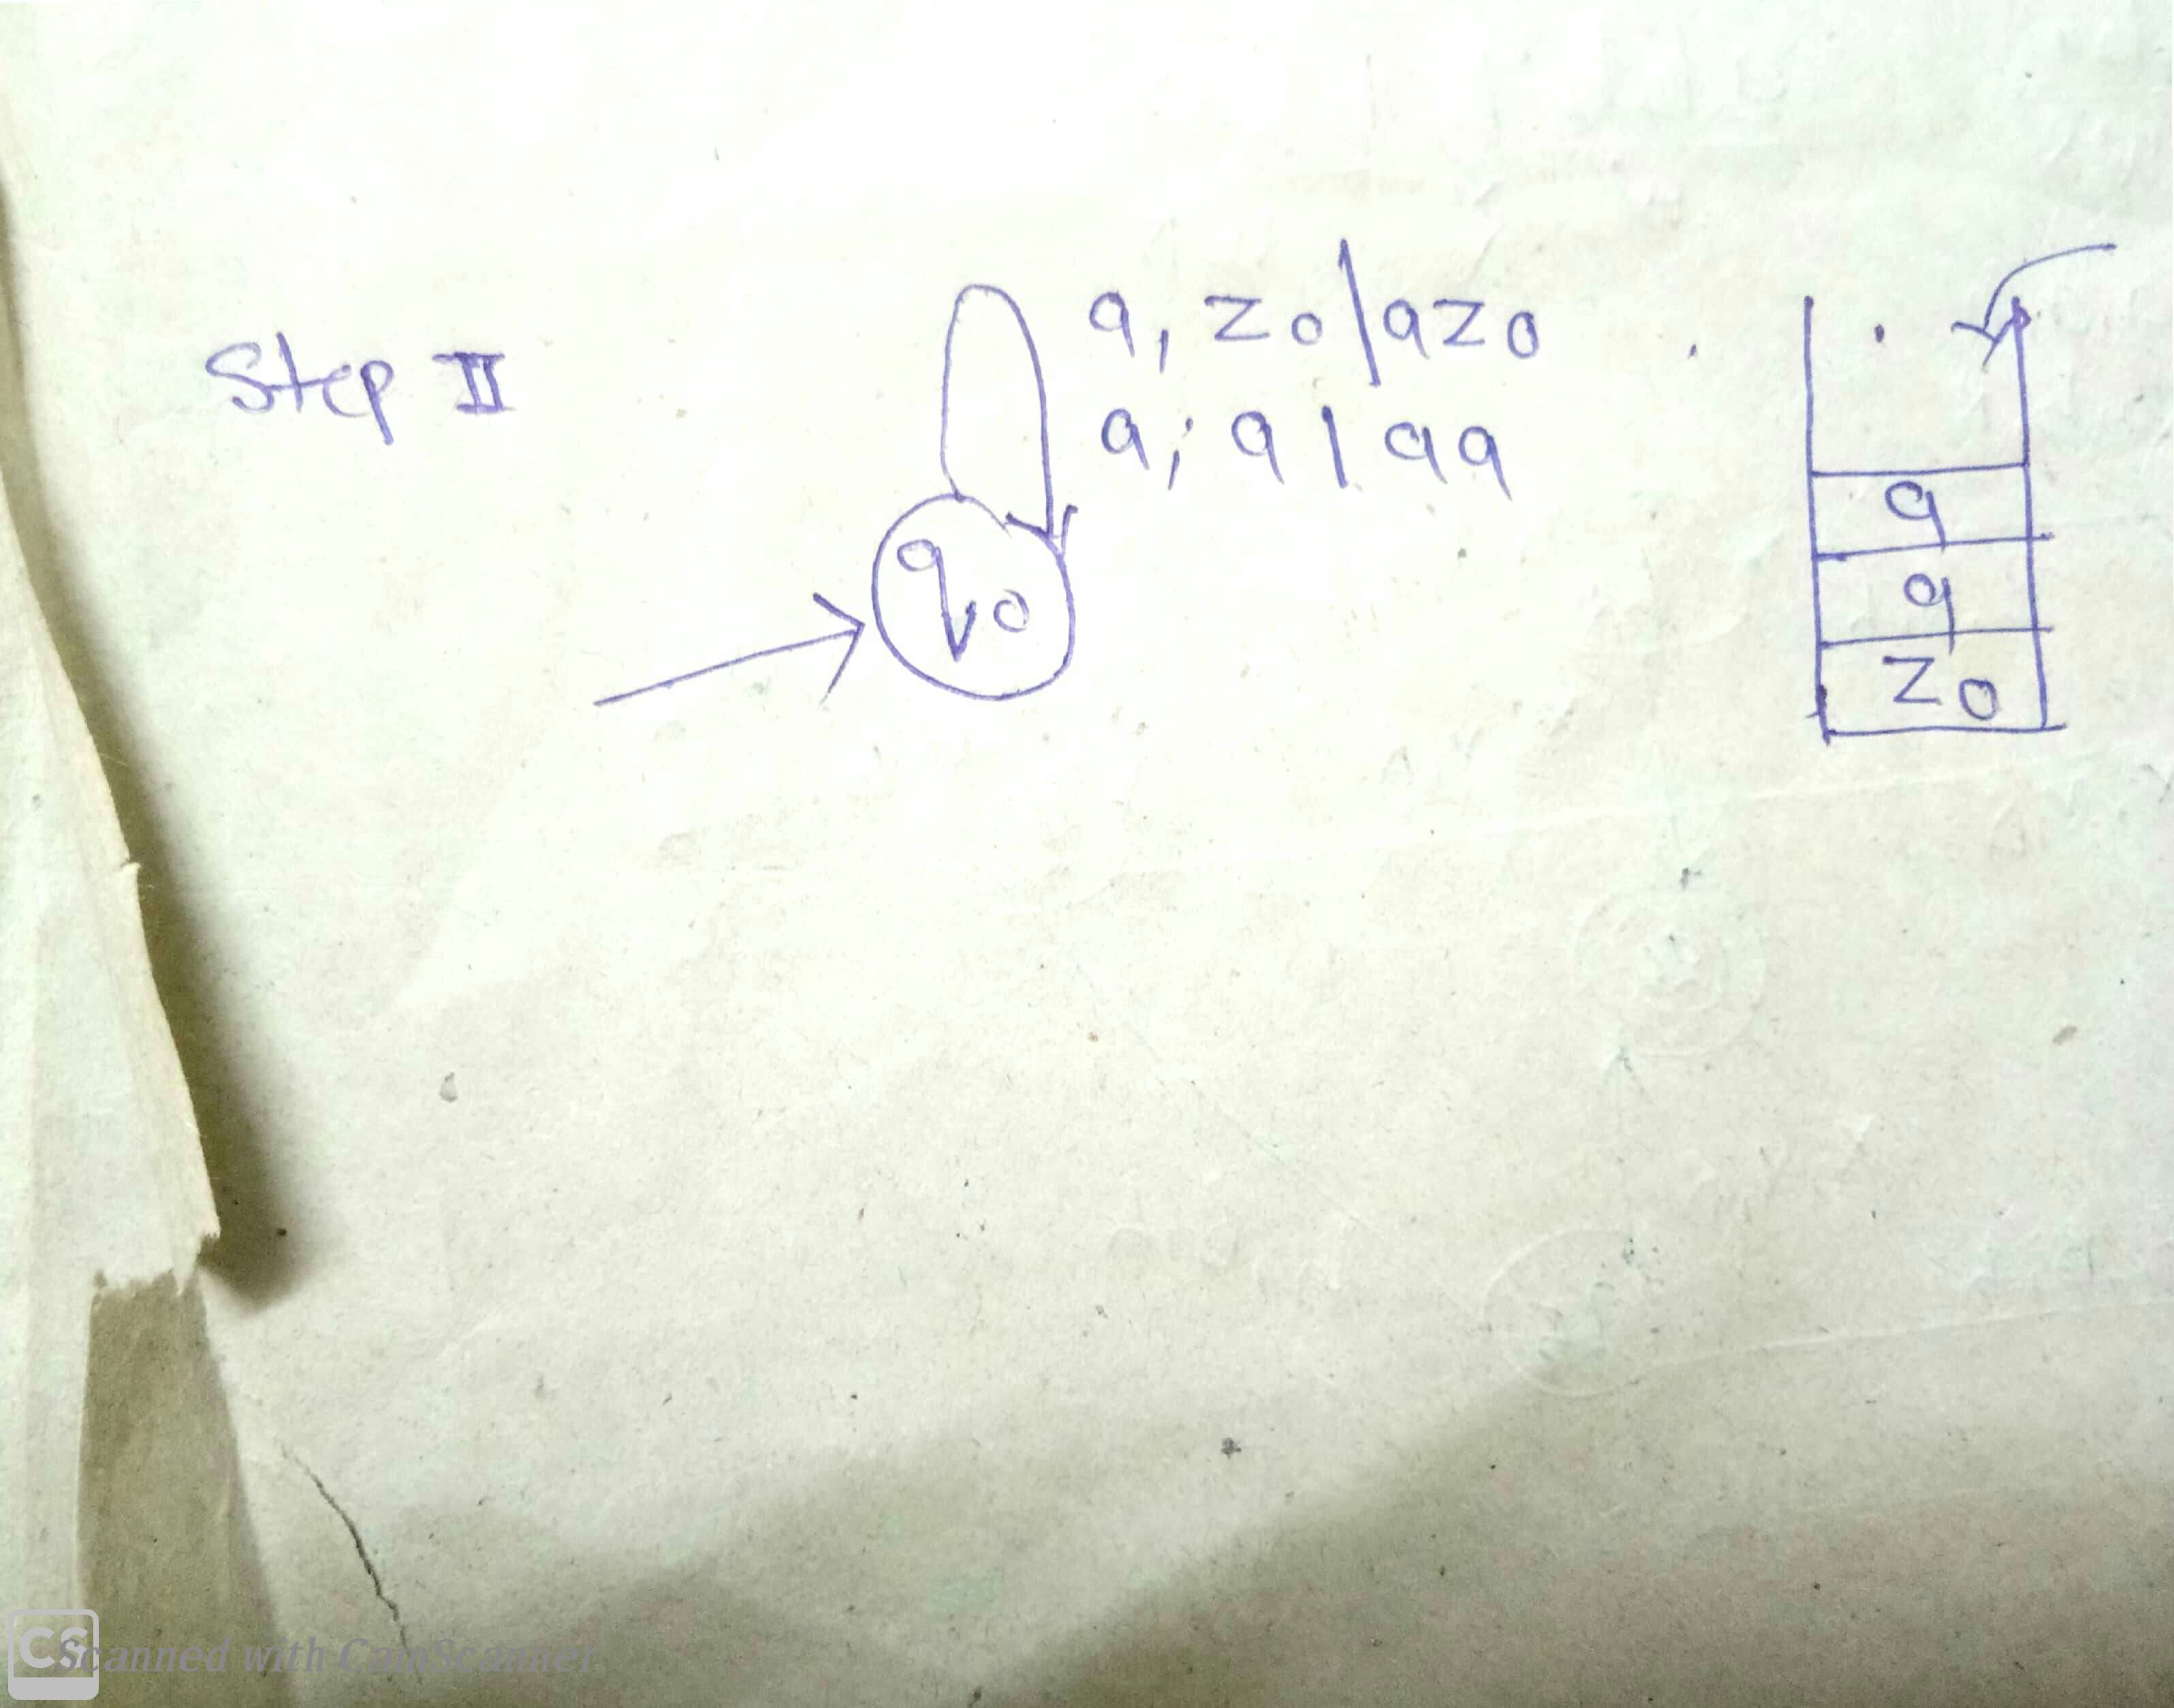 Step II
a, z0 | az0
a, a | aa
q0
a
a
z0
CS Scanned with CamScanner